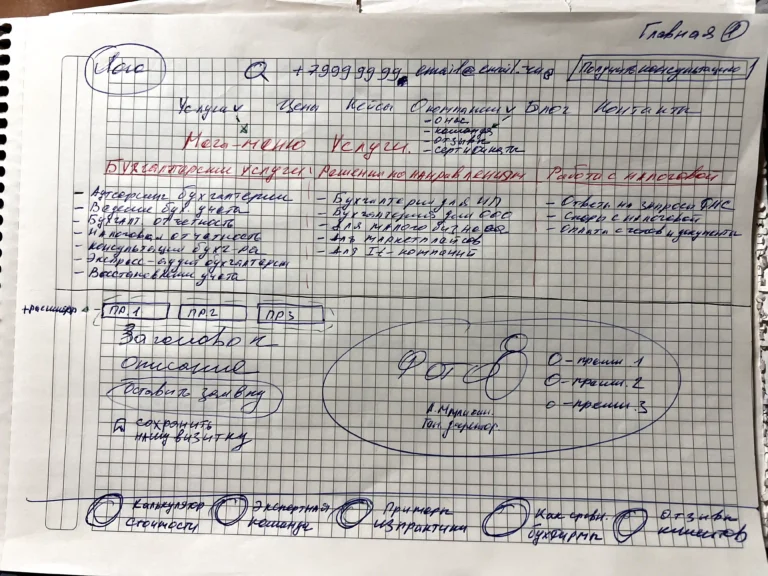 Главная 1
Лого +7999 99 99 email@email.
Получить консультацию
Услуги Цены Кейсы О компании Блог Контакты
- О нас
- команда
- отзывы
- сертификаты
Мега-меню Услуги.
Бухгалтерские услуги Решения по направлениям Работа с налоговой
- Аутсорсинг бухгалтерии
- Ведение бух. учета
- Бухгалт. отчетность
- Налоговая отчетность
- Консультации бухг-ра
- Экспресс-аудит бухгалтерии
- Восстановление учета
- Бухгалтерия для ИП
- Бухгалтерия для ООО
- Для малого бизнеса
- Для маркетплейсов
- Для It-компаний
- Ответы на запросы ФНС
- Споры с налоговой
- Оплата счетов и документы
ПР.1 ПР.2 ПР3
Заголовок
Описание
Оставить заявку
сохранить
нашу визитку
Фото
Ген. директор
О-преим. 1
О-преим. 2
о-преим. 3
Калькулятор
стоимости
Экспертная
команда
Примеры
из практики
Как сравн.
бухфирмы
Отзывы
клиентов